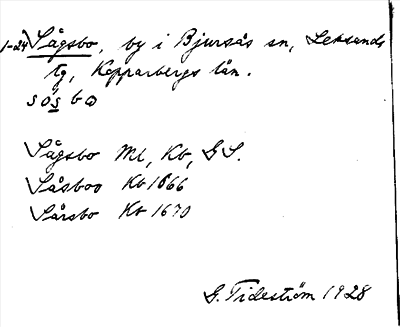 1-24) Sågsbo, by i Bjursås sn, Leksands
tg, Kopparbergs län.
sósbω
Sågsbo Ml, Kb, GS.
Såsboo Kb 1666
Sårsbo Kb 1670
G. Tideström 1928